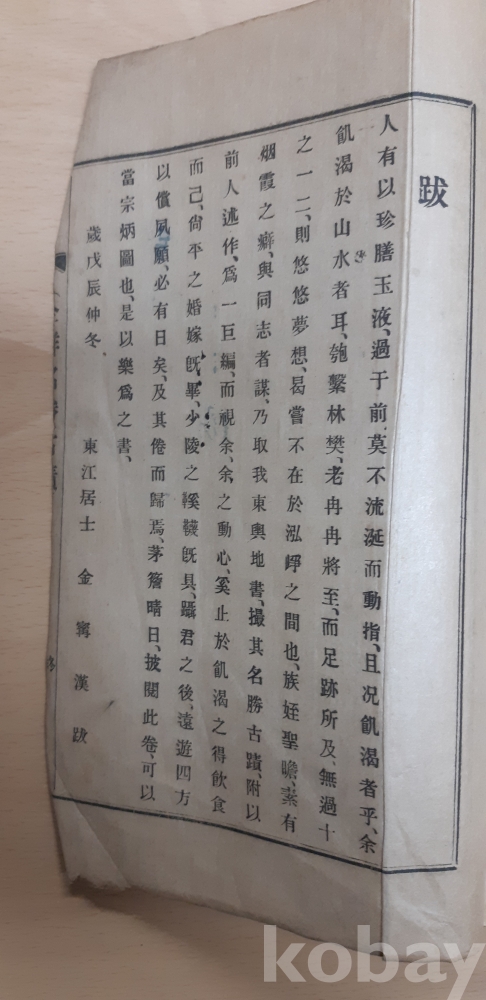 跋
人有以珍膳玉液、過于前、莫不流涎而動指、且况飢渴者乎、余
飢渴於山水者耳、匏繫林樊、老冉冉將至、而足跡所及、無過十
之一二、則悠悠夢想、曷嘗不在於泓崢之間也、族姪聖瞻、素有
烟霞之癖、與同志者謀、乃取我東輿地書、撮其名勝古蹟、附以
前人述作、爲一巨編、而視余、余之動心、奚止於飢渴之得飮食
而已、尙平之婚嫁旣畢、少陵之鞵韈旣具、躡君之後、遠遊四方
以償夙願、必有日矣、及其倦而歸焉、茅簷晴日、披閱此卷、可以
當宗炳圖也、是以樂爲之書、
歲戊辰仲冬、 東江居士 金 寗 漢 跋
kobay